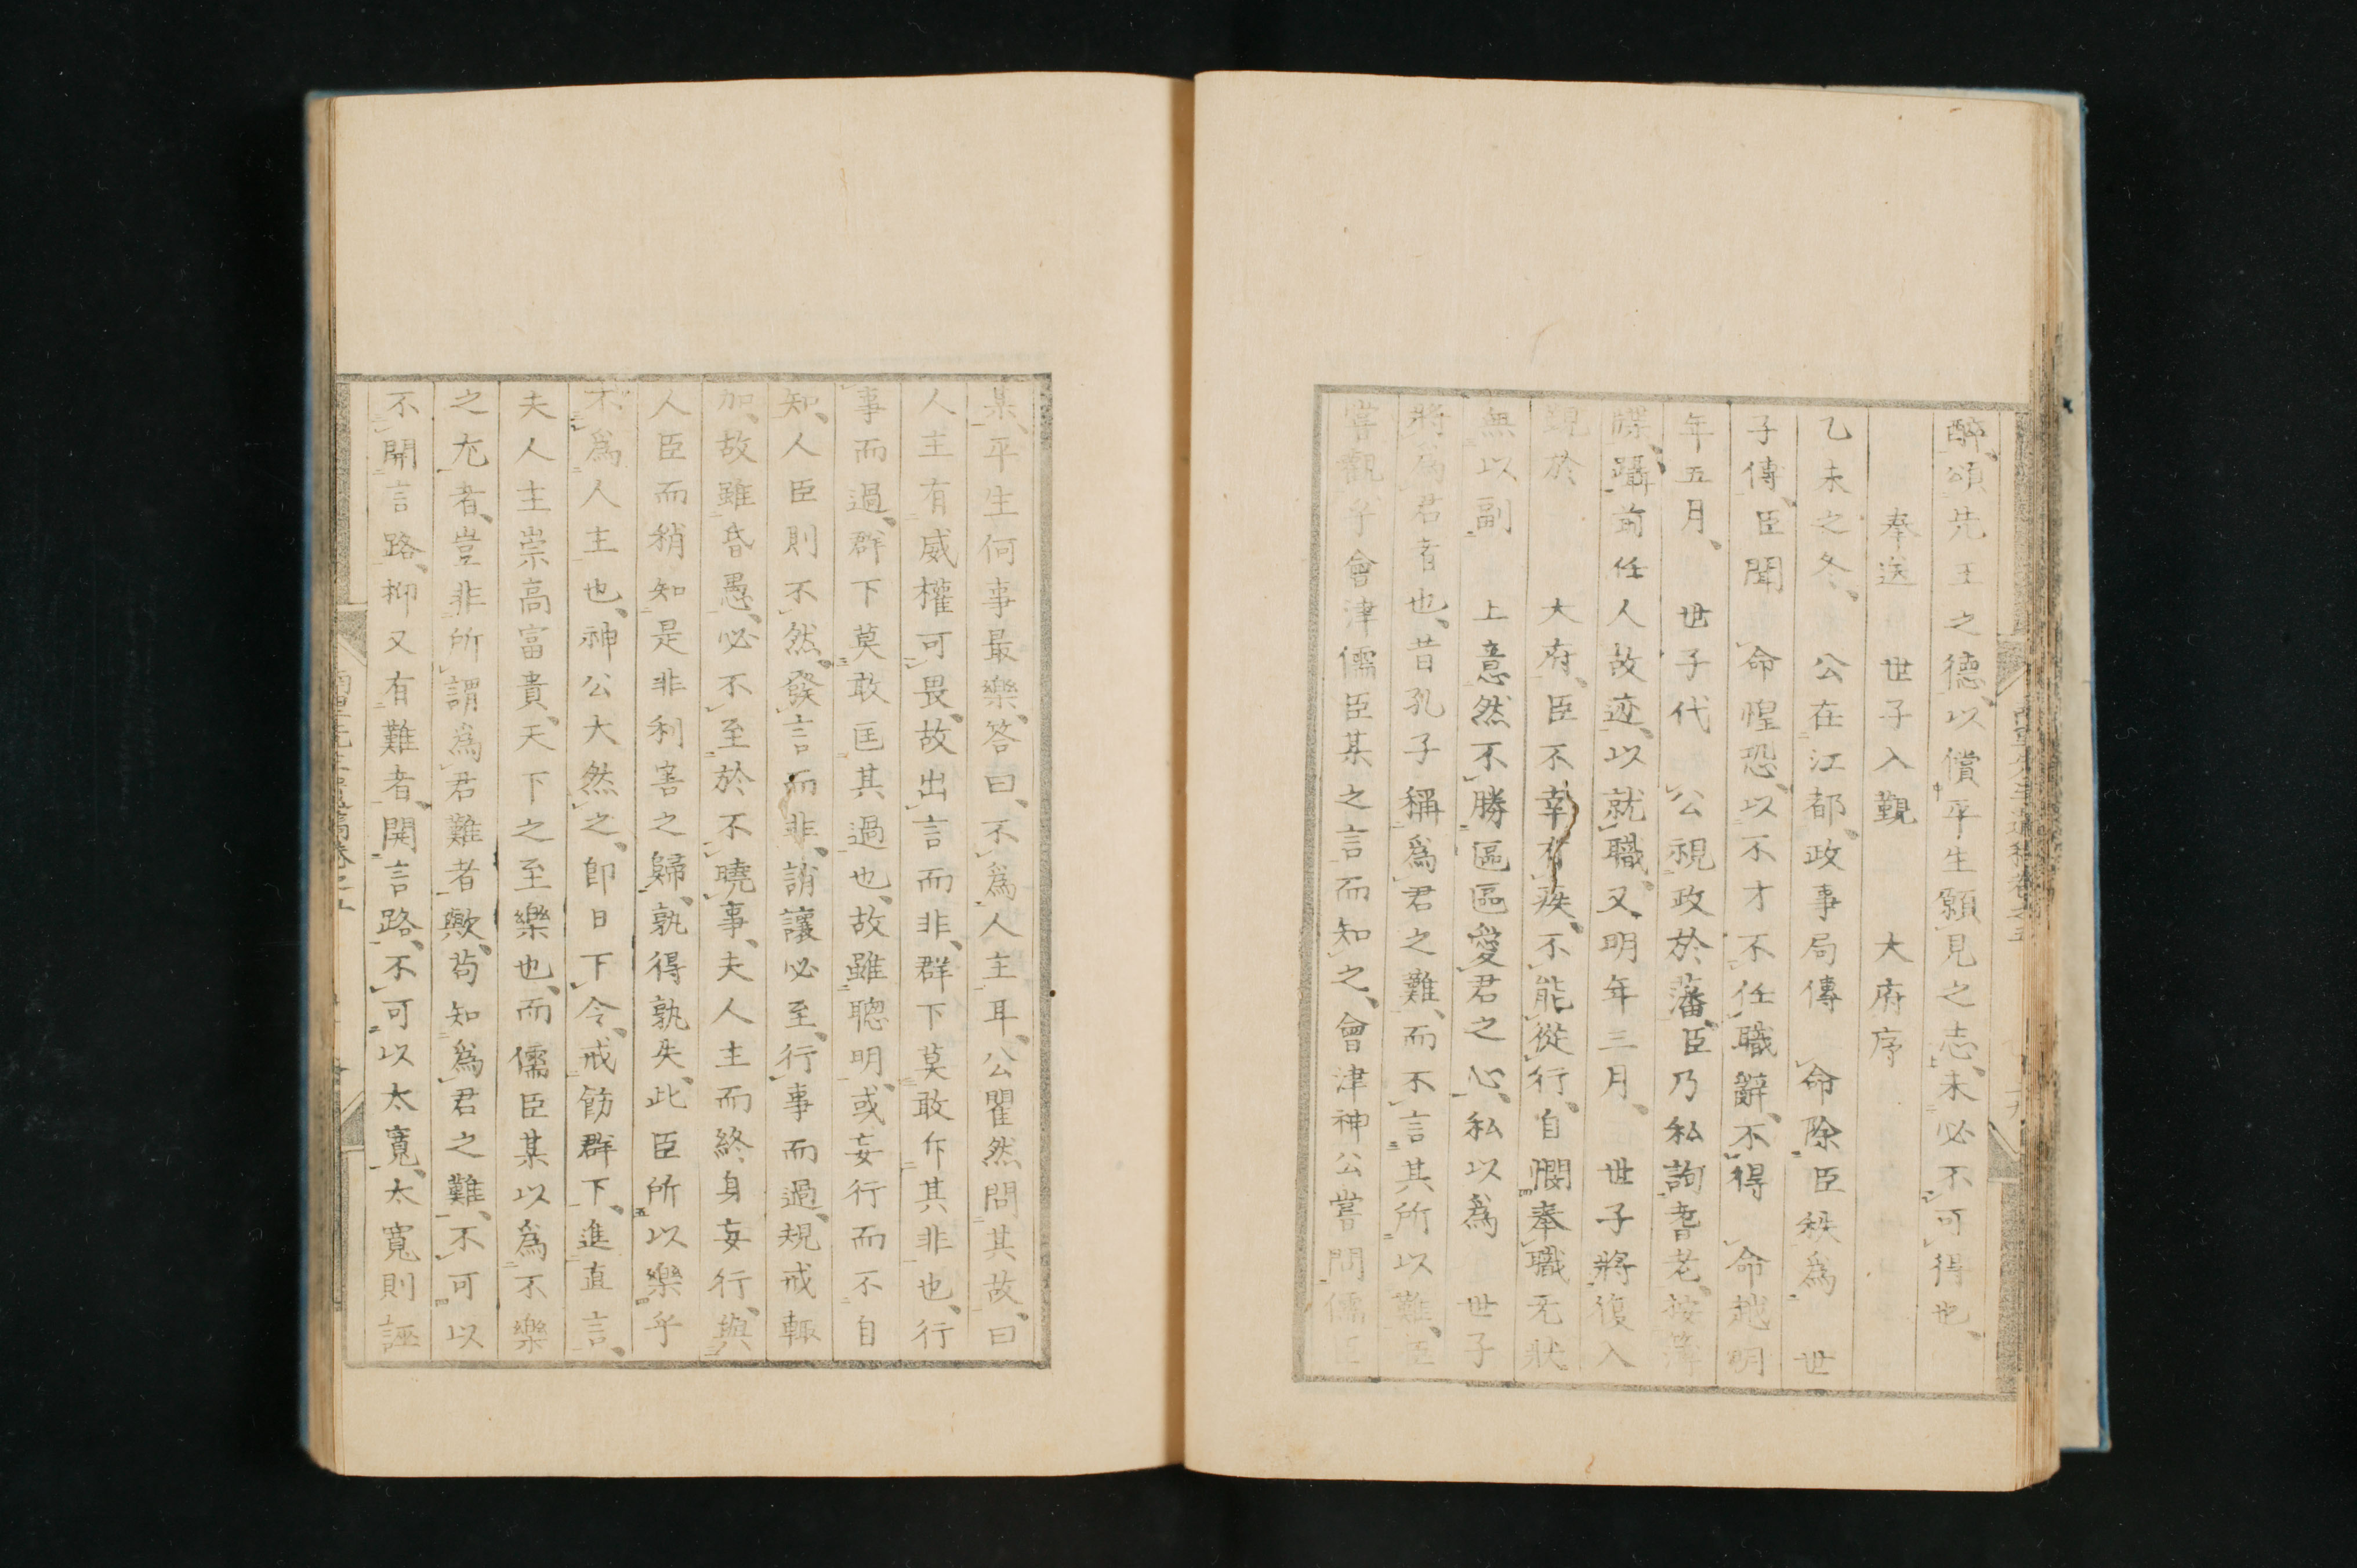 醉頌先王之德、以償平生願見之志、未必不可得也、
奉送　世子入覲　大府序
乙未之冬、　公在江都、政事局傳　命除臣秩爲　世
子傅、臣聞　命惶恐、以不才不任職辭、不得　命越明
年五月、　世子代　公視政於藩、臣乃私詢耆老、按簿
牒、躡前任人故迹、以就職、又明年三月、　世子將復入
覲於　大府、臣不幸有疾、不能從行、自憫奉職无狀
無以副　上意然不勝區區愛君之心、私以爲　世子
將爲君者也、昔孔子稱爲君之難、而不言其所以難、臣
嘗觀乎會津儒臣某之言而知之、會津神公嘗問儒臣
某、平生何事最樂、答曰、不爲人主耳、公瞿然問其故、曰
人主有威權可畏、故出言而非、群下莫敢斥其非也、行
事而過、群下莫敢匡其過也、故雖聰明、或妄行而不自
知、人臣則不然、發言而非、誚讓必至、行事而過、規戒輒
加、故雖昏愚、必不至於不曉事、夫人主而終身妄行、與
人臣而稍知是非利害之歸、孰得孰失、此臣所以樂乎
不爲人主也、神公大然之、卽日下令、戒飭群下、進直言、
夫人主崇高富貴、天下之至樂也、而儒臣某以爲不樂
之尤者、豈非所謂爲君難者歟、苟知爲君之難、不可以
不開言路、抑又有難者、開言路、不可以太寬、太寬則誣